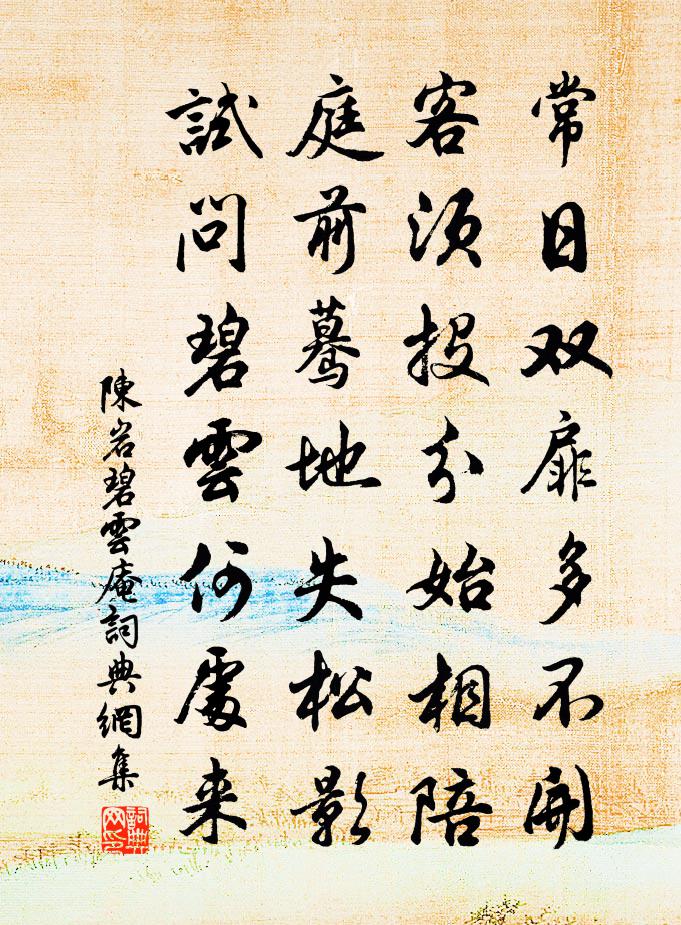 常日双扉多不開
客須投分始相陪
庭前驀地失松影
試問碧雲何處来
陳岩碧雲庵詞典網集
詞典网印